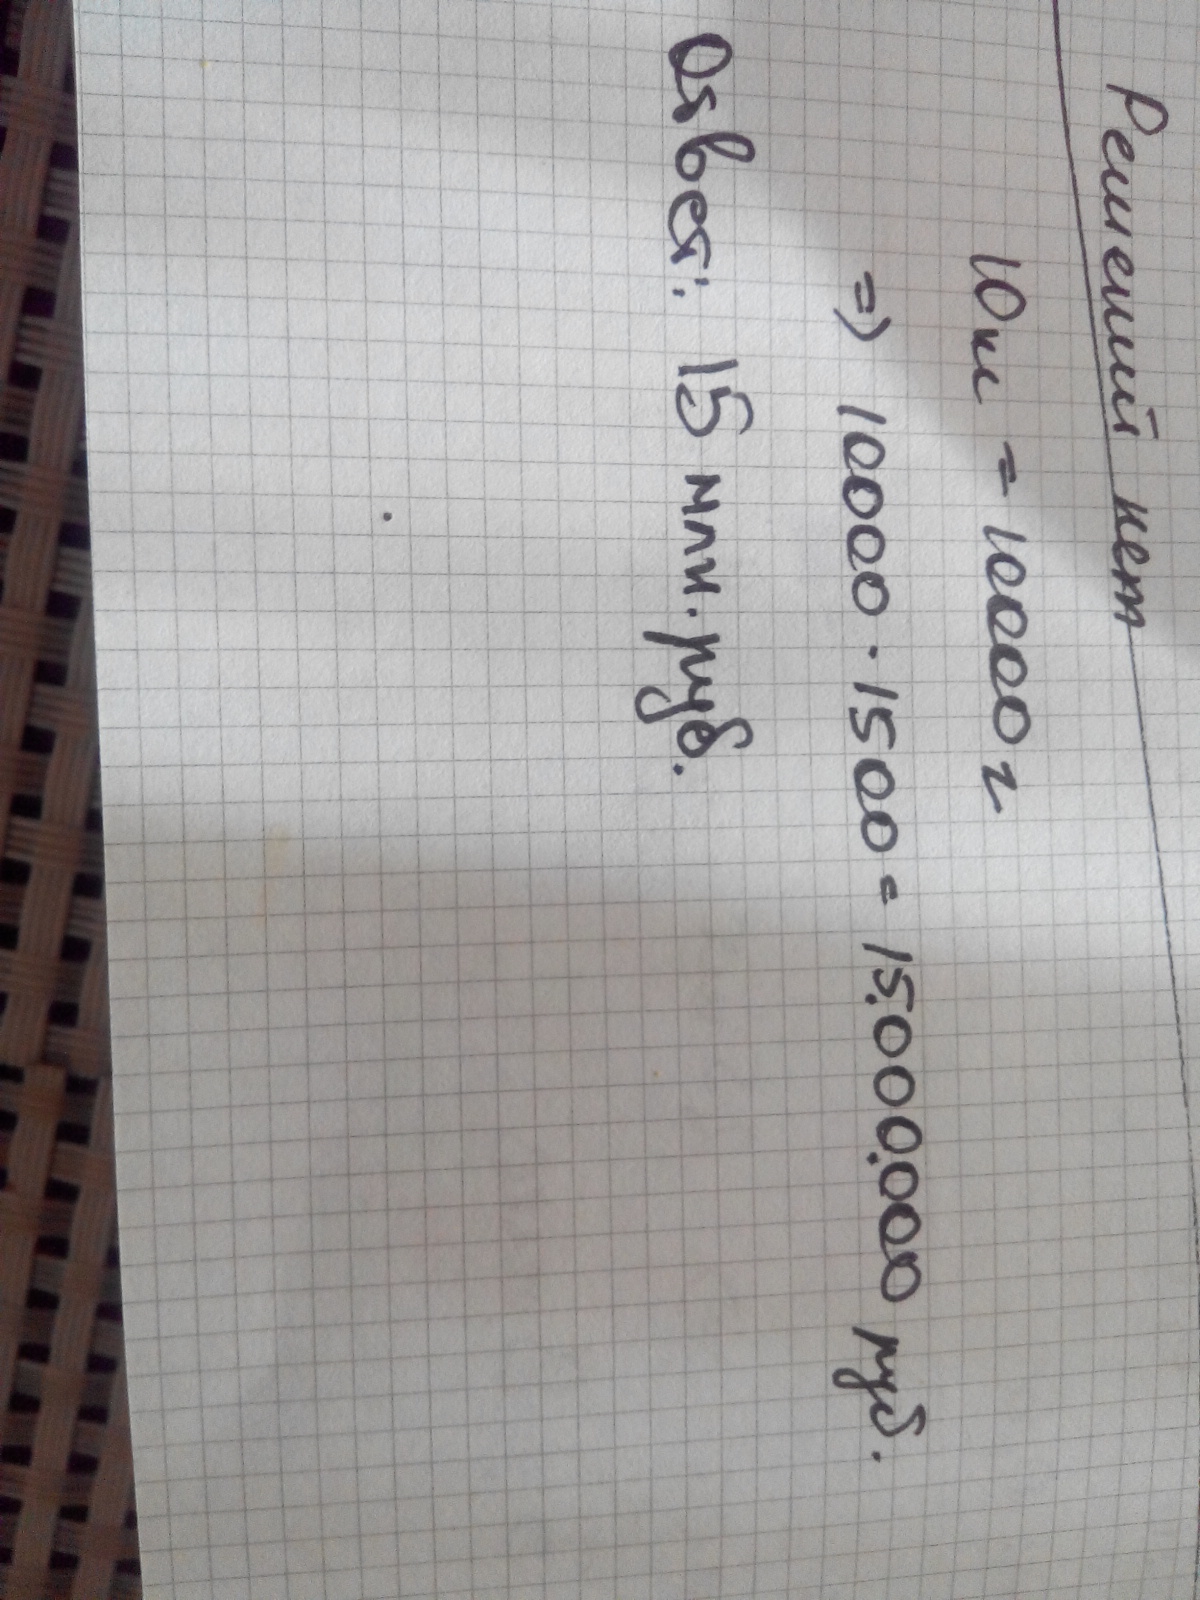 Решений нет
10 кг = 10000 г
=> 10000 · 1500 = 15.000.000 руб.
Ответ: 15 млн. руб.